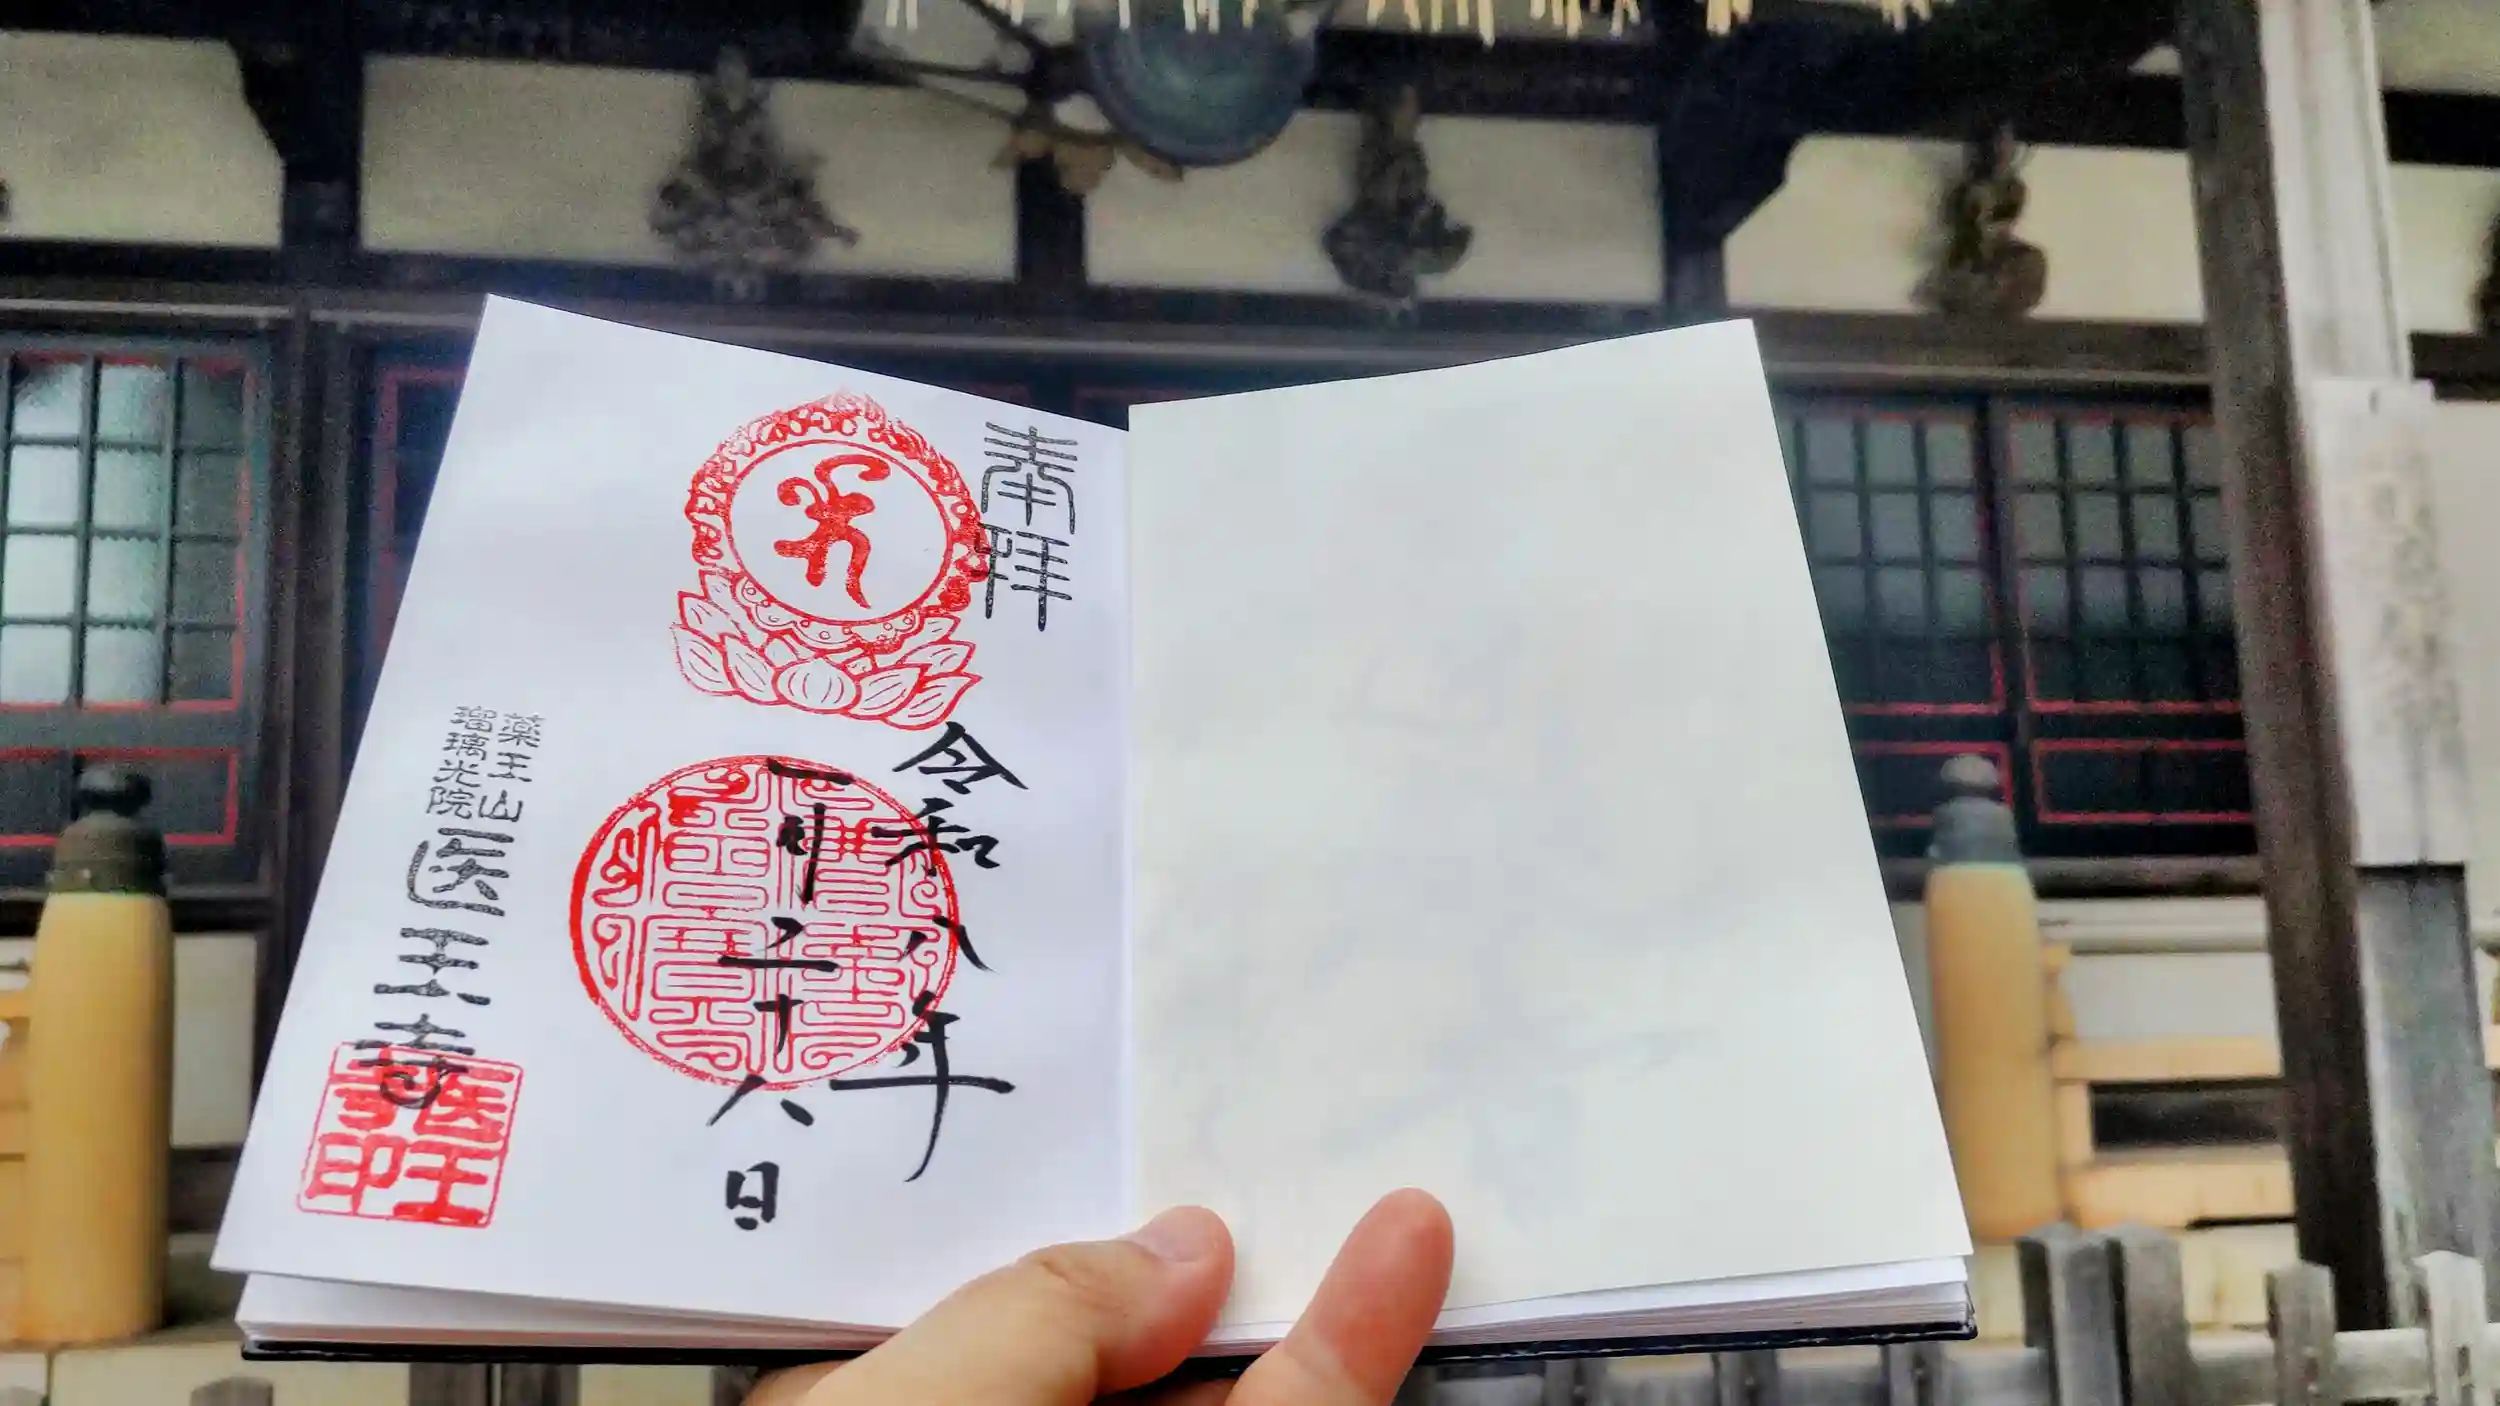 奉拝
令和八年
一月二十八日
薬王山
瑠璃光院
医王寺
医王
寺印